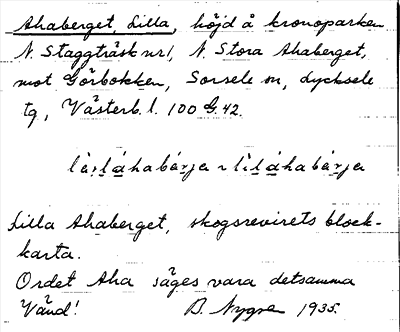 Ahaberget, Lilla, höjd å kronoparken
N. Staggträsk nr1, N. Stora Ahaberget,
mot Görbokken, Sorsele sn, Lycksele
tg, Västerb. l. 100 G. 42.
Lilla Ahaberget, skogsrevirets block-
karta.
Ordet Aha säges vara detsamma
Vänd! B. Nygren 1935.